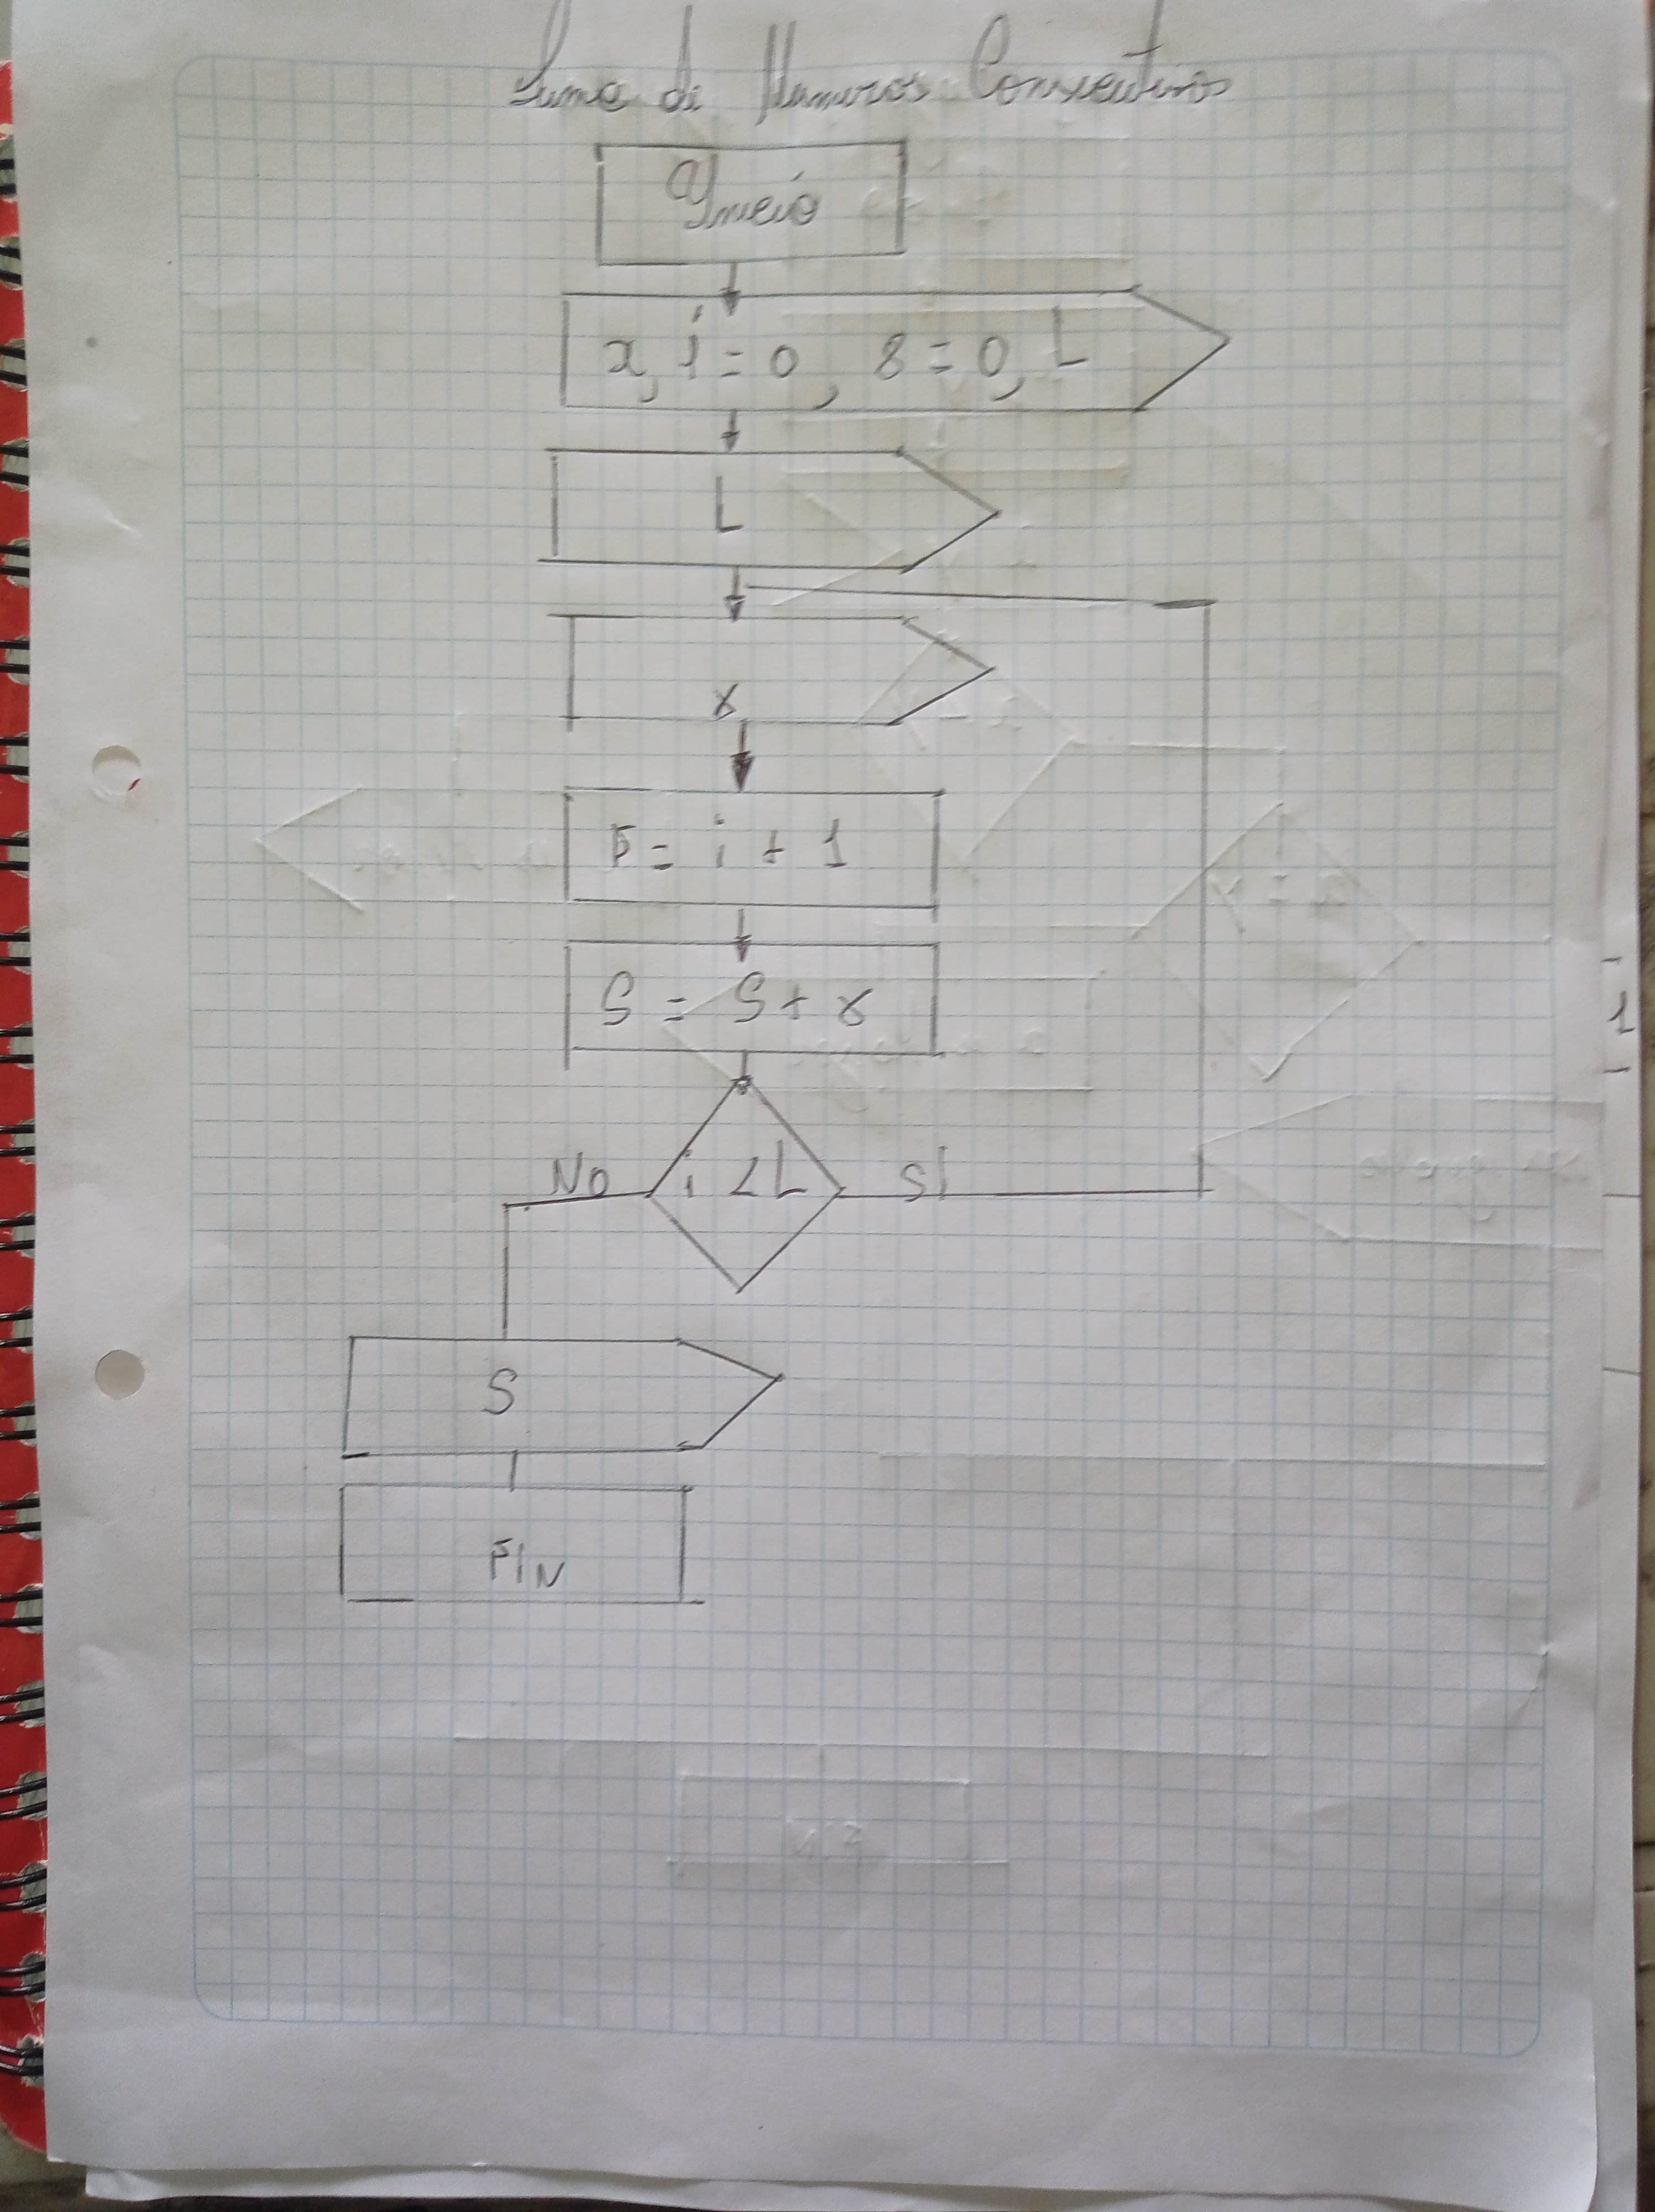 Suma de Numeros Consecutivos
Inicio
x, i = 0, S = 0, L
L
x
= i + 1
S = S + x
No i < L Si
S
FIN
1